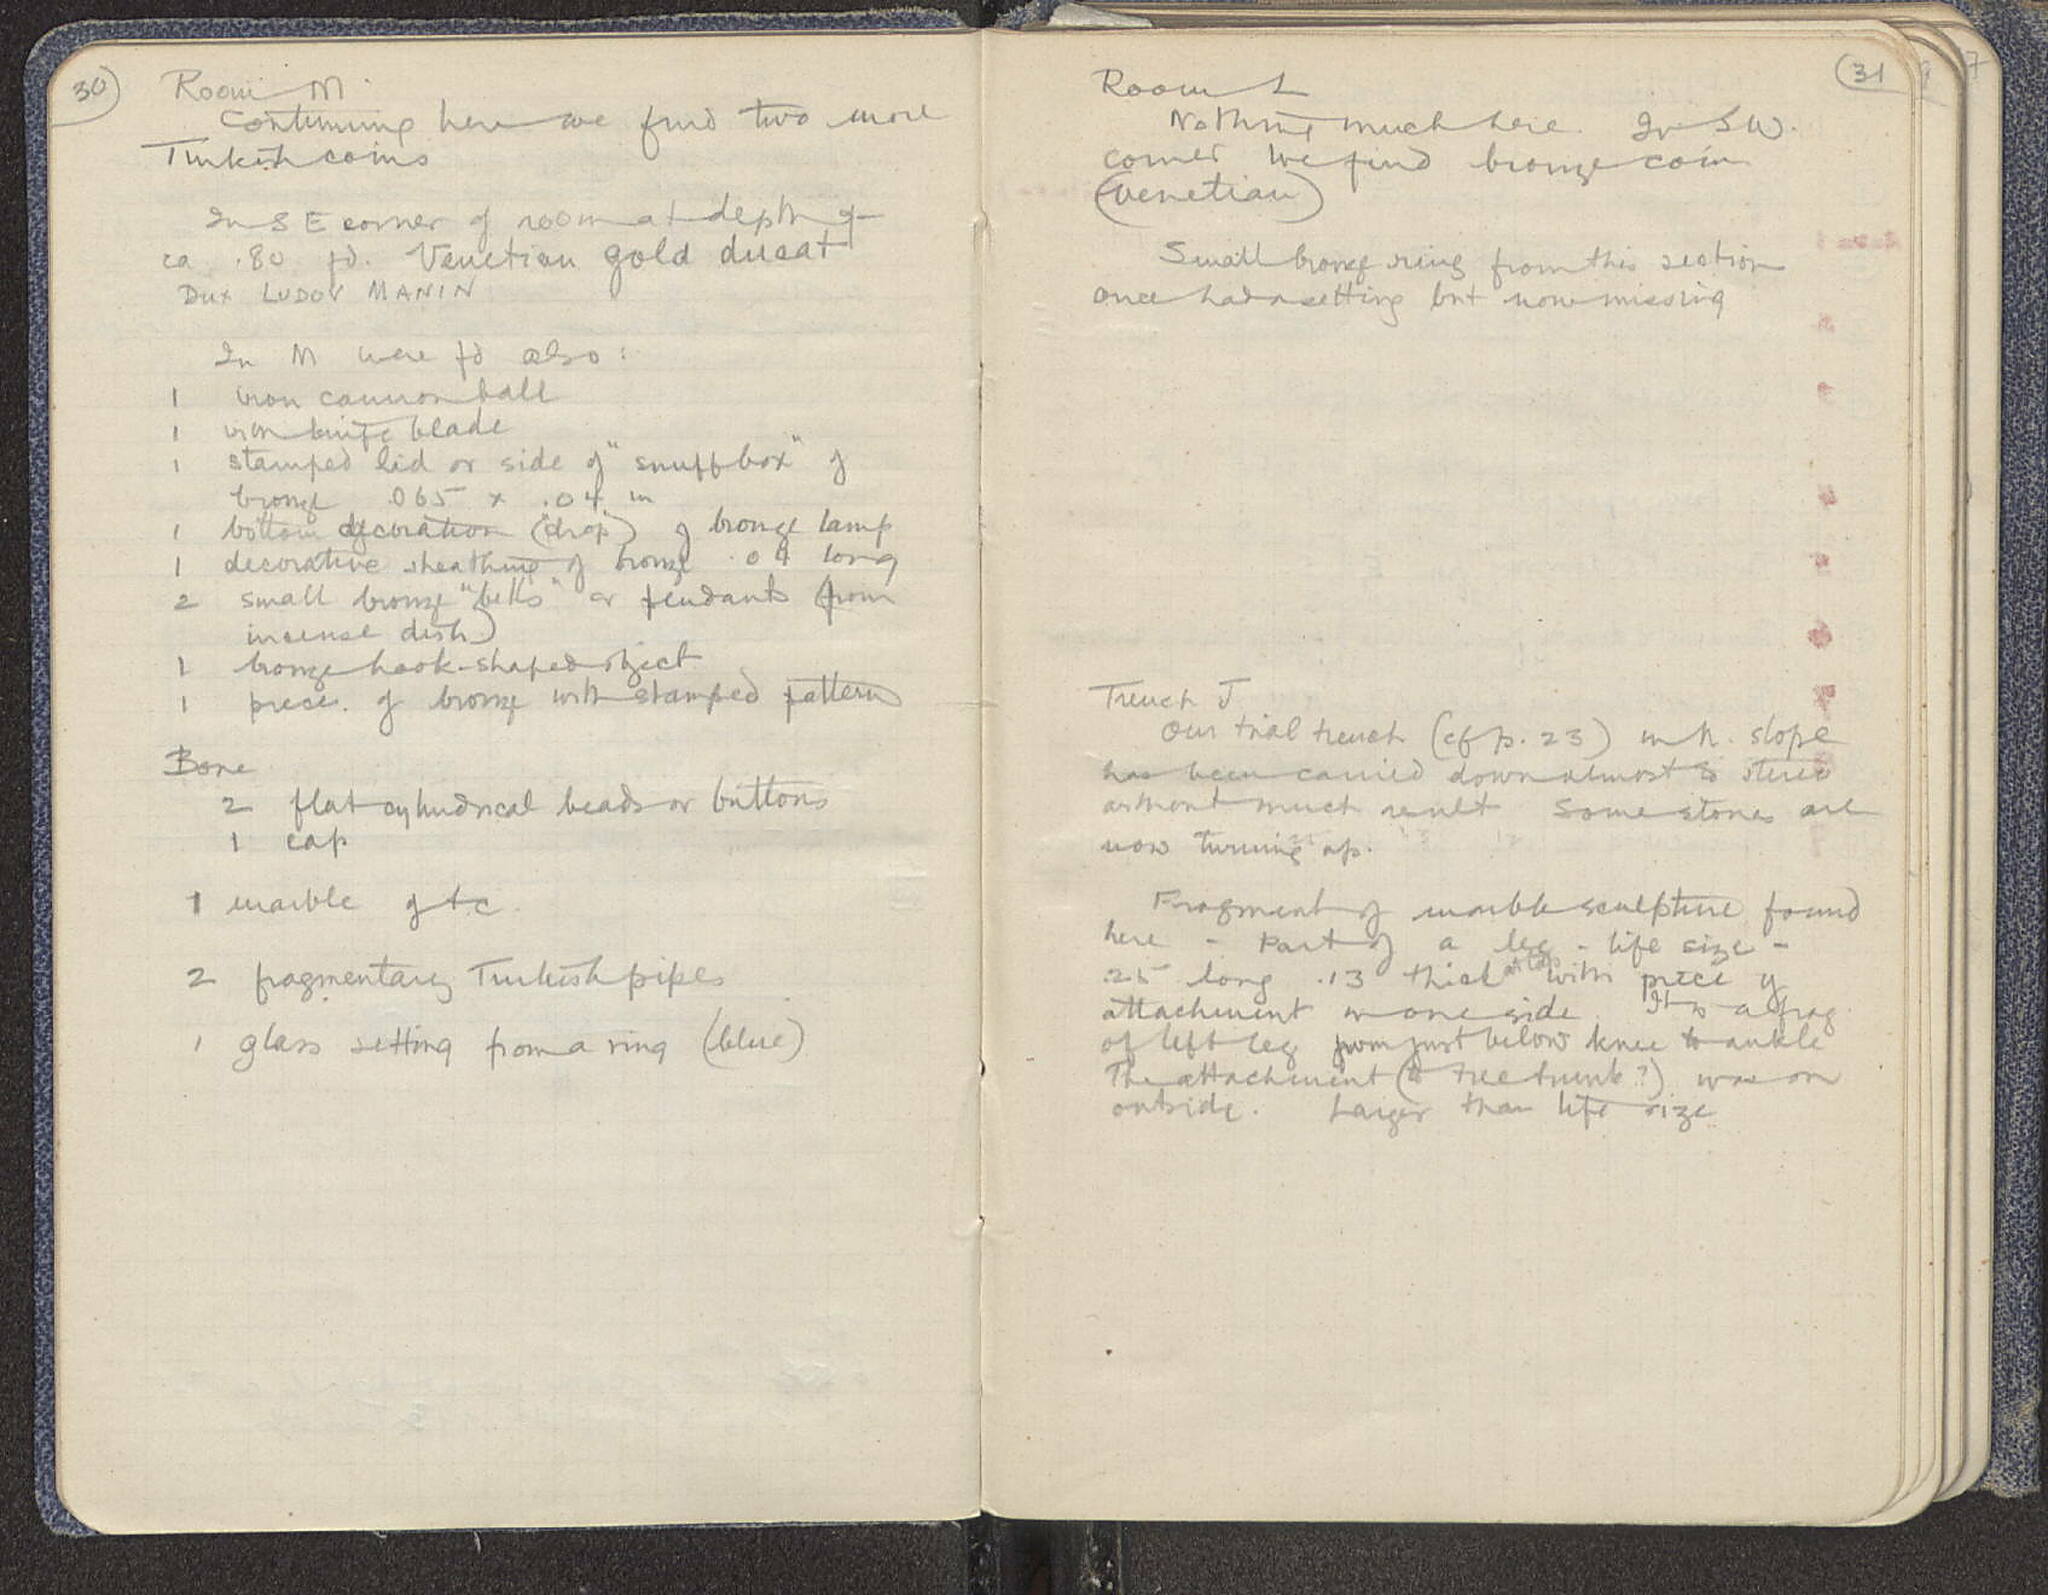 30
Room M.
Continuing here we find two more
Turkish coins
In S E corner of room at depth of
ca .80 fd. Venetian gold ducat
Dux LUDOV MANIN
In M were fd also:
1 iron cannon ball
1 iron knife blade
1 stamped lid or side of "snuff box" of
bronze .065 x .04 m
1 bottom decoration ("drop") of bronze lamp
1 decorative sheathing of bronze .04 long
2 small bronze "bells" or pendants (from
incense dish)
1 bronze hook-shaped object
1 piece. of bronze with stamped pattern
Bone
2 flat cylindrical beads or buttons
1 cap
1 marble of t c.
2 fragmentary Turkish pipes
1 glass setting from a ring (blue)
31
Room L
Nothing much here. In S W.
corner we find bronze coin
(Venetian)
Small bronze ring from this section
once had a setting but now missing
Trench J
Our trial trench (cf p. 23) in N. slope
has been carried down almost to stereo
without much result Some stones are
now turning up.
Fragment of marble sculpture found
here - Part of a leg - life size -
.25 long .13 thick at top with piece of
attachment on one side. It is a frag.
of left leg from just below knee to ankle
The attachment (to tree trunk?) was on
outside. Larger than life size